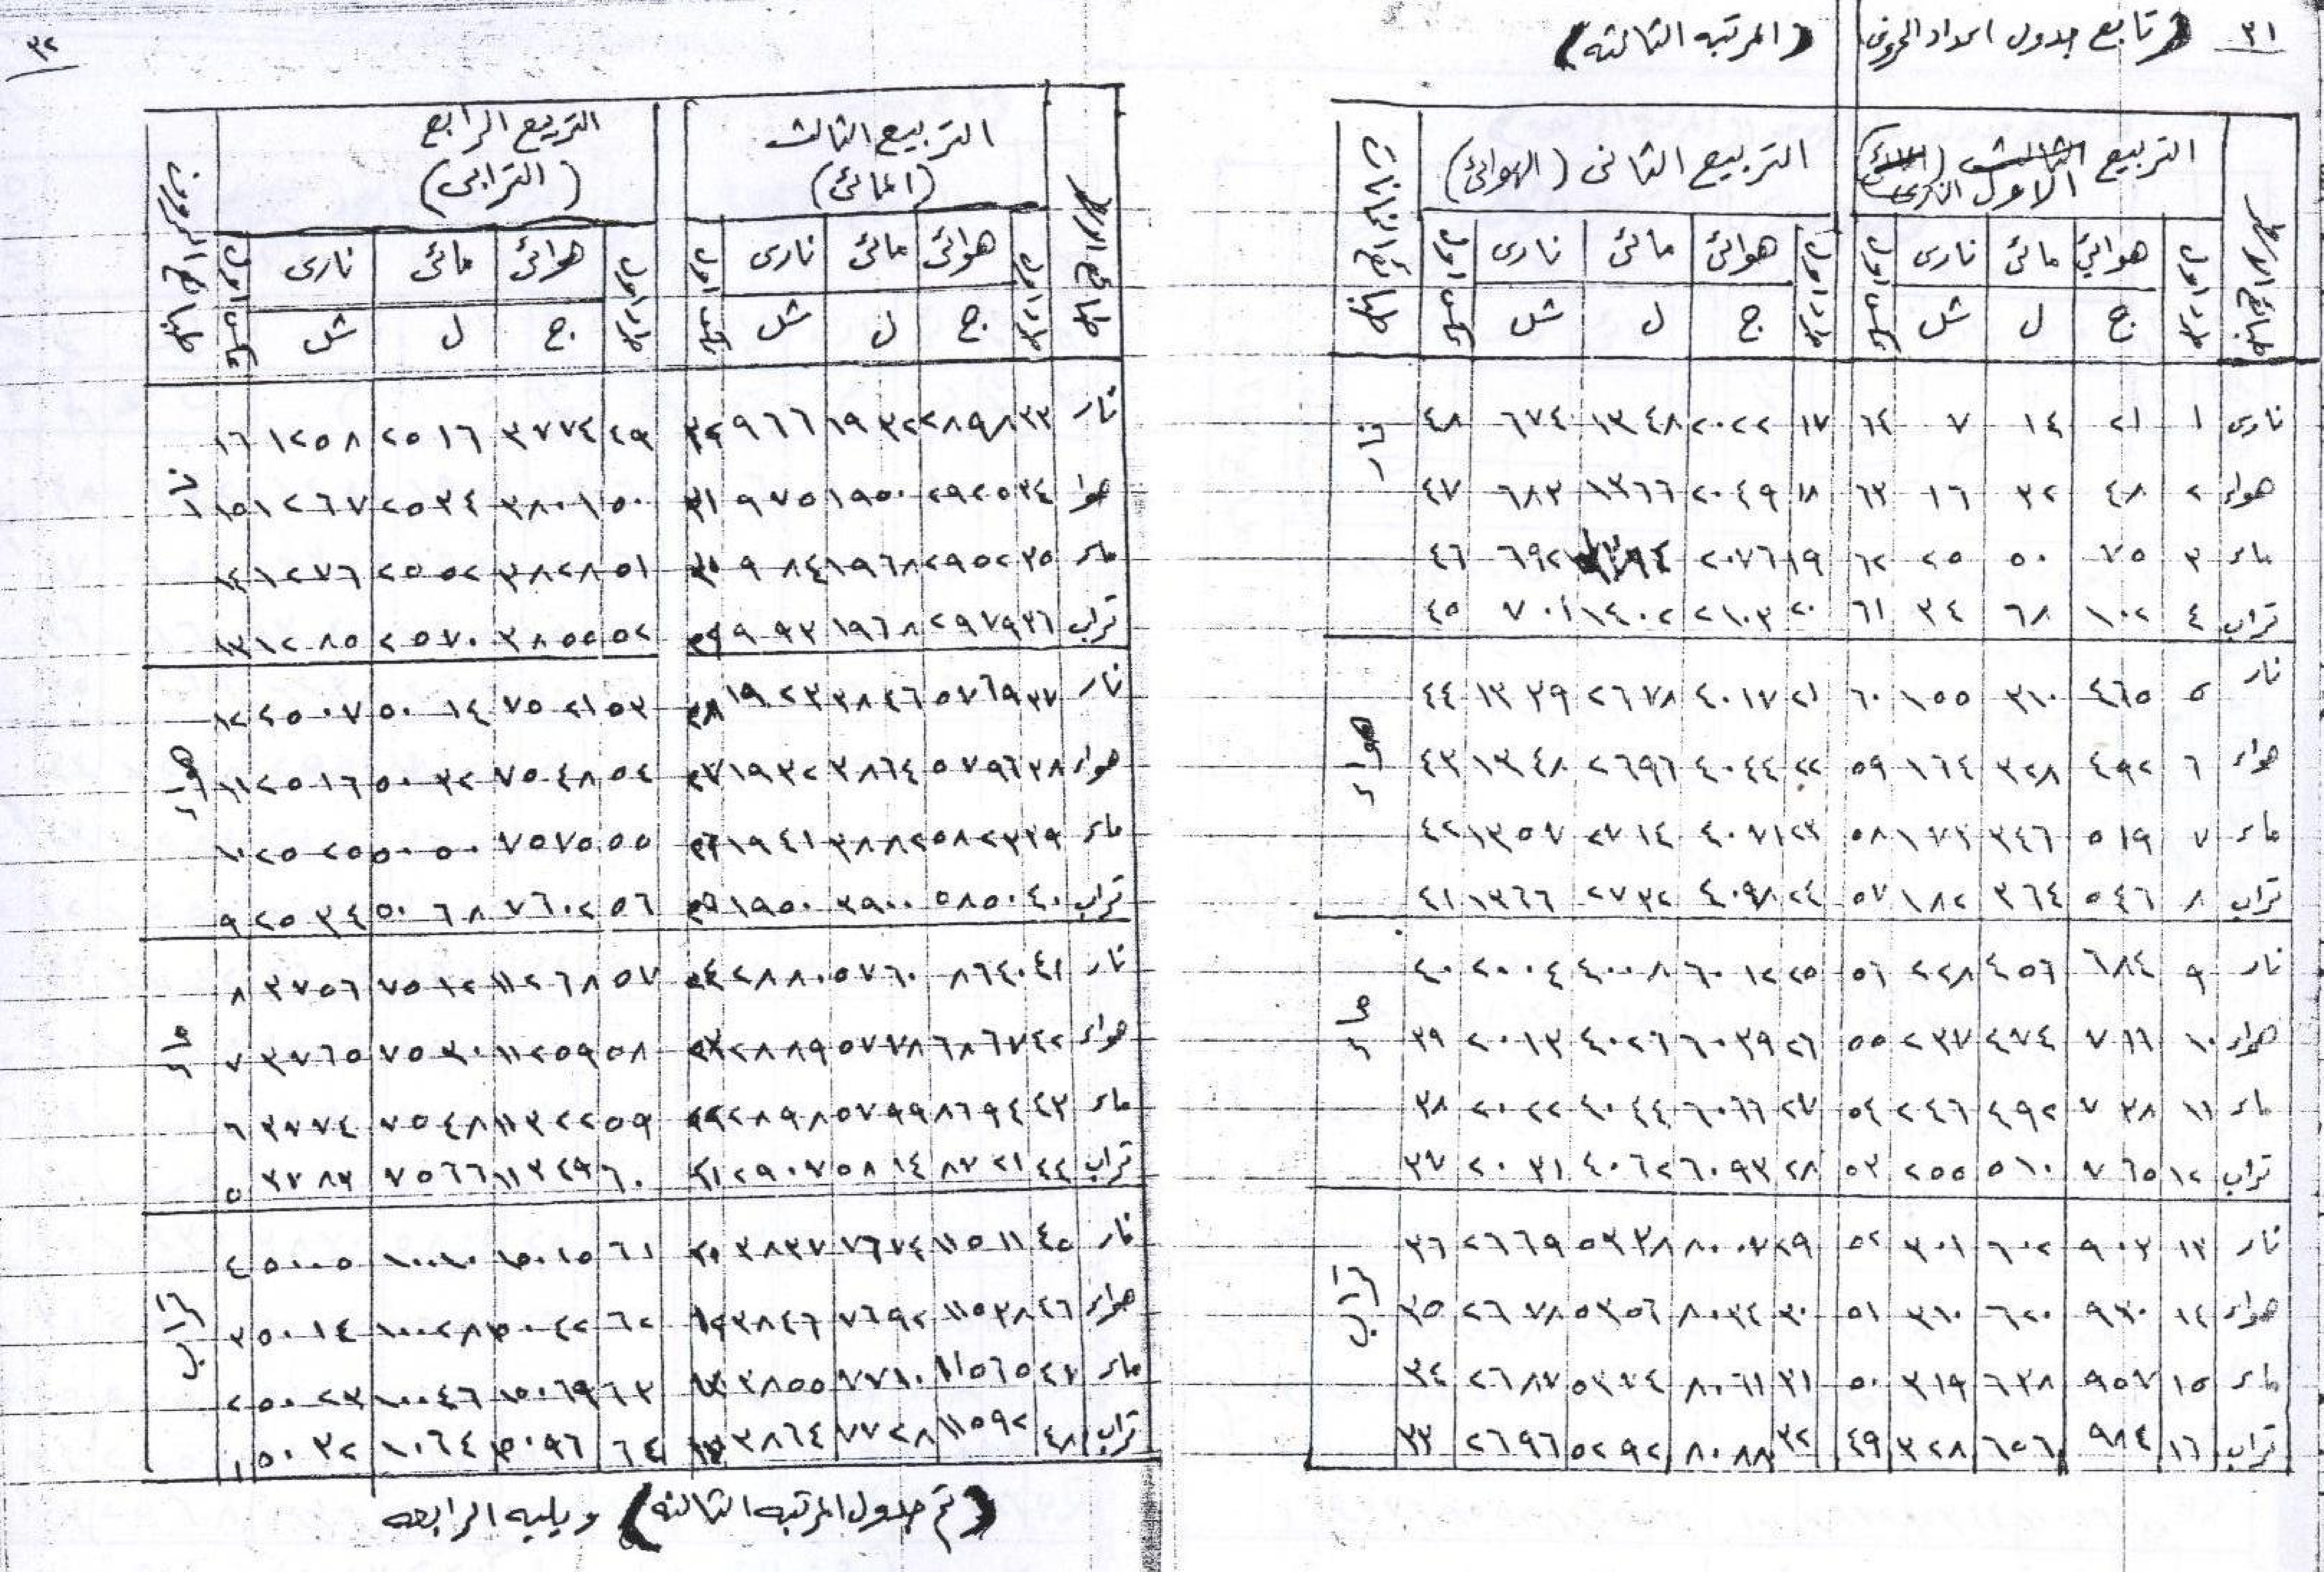 ٣١ (تابع جدول اعداد الحروف) (المرتبه الثالثه)
التربيع الاول النارى التربيع الثانى (الهوائى)
هوائي مائى نارى هوائى مائى نارى
ج ل شل ج ل شل
نارى ١ ٢١ ١٤ ٧ ٦٤ ١٧ ٢٠٢٢ ١٣٤٨ ٦٧٤ ٤٨ نار
هواء ٢ ٤٨ ٣٢ ١٦ ٦٣ ١٨ ٢٠٤٩ ١٣٦٦ ٦٨٣ ٤٧
ماء ٣ ٧٥ ٥٠ ٢٥ ٦٢ ١٩ ٢٠٧٦ ٦٩٢ ٤٦
تراب ٤ ١٠٢ ٦٨ ٣٤ ٦١ ٢٠ ٢١٠٣ ١٤٠٢ ٧٠١ ٤٥
نار ٥ ٤٦٥ ٣١٠ ١٥٥ ٦٠ ٢١ ٤٠١٧ ٢٦٧٨ ١٣٣٩ ٤٤ هواء
هواء ٦ ٤٩٢ ٣٢٨ ١٦٤ ٥٩ ٢٢ ٤٠٤٤ ٢٦٩٦ ١٣٤٨ ٤٣
ماء ٧ ٥١٩ ٣٤٦ ١٧٣ ٥٨ ٢٣ ٤٠٧١ ٢٧١٤ ١٣٥٧ ٤٢
تراب ٨ ٥٤٦ ٣٦٤ ١٨٢ ٥٧ ٢٤ ٤٠٩٨ ٢٧٣٢ ١٣٦٦ ٤١
نار ٩ ٦٨٤ ٤٥٦ ٢٢٨ ٥٦ ٢٥ ٦٠١٢ ٤٠٠٨ ٢٠٠٤ ٤٠ ماء
هواء ١٠ ٧١١ ٤٧٤ ٢٣٧ ٥٥ ٢٦ ٦٠٣٩ ٤٠٢٦ ٢٠١٣ ٣٩
ماء ١١ ٧٣٨ ٤٩٢ ٢٤٦ ٥٤ ٢٧ ٦٠٦٦ ٤٠٤٤ ٢٠٢٢ ٣٨
تراب ١٢ ٧٦٥ ٥١٠ ٢٥٥ ٥٣ ٢٨ ٦٠٩٣ ٤٠٦٢ ٢٠٣١ ٣٧
نار ١٣ ٩٠٣ ٦٠٢ ٣٠١ ٥٢ ٢٩ ٨٠٠٧ ٥٣٣٨ ٢٦٦٩ ٣٦ تراب
هواء ١٤ ٩٣٠ ٦٢٠ ٣١٠ ٥١ ٣٠ ٨٠٣٤ ٥٣٥٦ ٢٦٧٨ ٣٥
ماء ١٥ ٩٥٧ ٦٣٨ ٣١٩ ٥٠ ٣١ ٨٠٦١ ٥٣٧٤ ٢٦٨٧ ٣٤
تراب ١٦ ٩٨٤ ٦٥٦ ٣٢٨ ٤٩ ٣٢ ٨٠٨٨ ٥٢٩٢ ٢٦٩٦ ٣٣
٣٢
التربيع الثالث التربيع الرابع
(المائى) (الترابى)
هوائى مائى نارى هوائى مائى نارى
ج ل شل ج ل شل
نار ٣٣ ٢٨٩٨ ١٩٣٢ ٩٦٦ ٣٢ ٤٩ ٣٧٧٤ ٢٥١٦ ١٢٥٨ ١٦ نار
هوا ٣٤ ٢٩٢٥ ١٩٥٠ ٩٧٥ ٣١ ٥٠ ٣٨٠١ ٢٥٣٤ ١٢٦٧ ١٥
ماء ٣٥ ٢٩٥٢ ١٩٦٨ ٩٨٤ ٣٠ ٥١ ٣٨٢٨ ٢٥٥٢ ١٢٧٦ ١٤
تراب ٣٦ ٢٩٧٩ ١٩٦٨ ٩٩٣ ٢٩ ٥٢ ٣٨٥٥ ٢٥٧٠ ١٢٨٥ ١٣
نار ٣٧ ٥٧٦٩ ٣٨٤٦ ١٩٢٣ ٢٨ ٥٣ ٧٥٢١ ٥٠١٤ ٢٥٠٧ ١٢ هواء
هواء ٣٨ ٥٧٩٦ ٣٨٦٤ ١٩٣٢ ٢٧ ٥٤ ٧٥٤٨ ٥٠٣٢ ٢٥١٦ ١١
ماء ٣٩ ٥٨٢٣ ٣٨٨٢ ١٩٤١ ٢٦ ٥٥ ٧٥٧٥ ٥٠٥٠ ٢٥٢٥ ١٠
تراب ٤٠ ٥٨٥٠ ٣٩٠٠ ١٩٥٠ ٢٥ ٥٦ ٧٦٠٢ ٥٠٦٨ ٢٥٣٤ ٩
نار ٤١ ٨٦٤٠ ٥٧٦٠ ٢٨٨٠ ٢٤ ٥٧ ١١٢٦٨ ٧٥١٢ ٣٧٥٦ ٨ ماء
هواء ٤٢ ٦٨٦٧ ٥٧٧٨ ٢٨٨٩ ٢٣ ٥٨ ١١٢٥٩ ٧٥٣٠ ٣٧٦٥ ٧
ماء ٤٣ ٨٦٩٤ ٥٧٩٩ ٢٨٩٨ ٢٢ ٥٩ ١١٣٢٢ ٧٥٤٨ ٣٧٧٤ ٦
تراب ٤٤ ٨٧٢١ ٥٨١٤ ٢٩٠٧ ٢١ ٦٠ ١١٣٤٩ ٧٥٦٦ ٣٧٨٣ ٥
نار ٤٥ ١١٥١١ ٧٦٧٤ ٣٨٣٧ ٢٠ ٦١ ١٥٠١٥ ١٠٠١٠ ٥٠٠٥ ٤ تراب
هواء ٤٦ ١١٥٣٨ ٧٦٩٢ ٣٨٤٦ ٦٢ ١٥٠٤٢ ١٠٠٢٨ ٥٠١٤ ٣
ماء ٤٧ ١١٥٦٥ ٧٧١٠ ٣٨٥٥ ٦٣ ١٥٠٦٩ ١٠٠٤٦ ٥٠٢٣ ٢
تراب ٤٨ ١١٥٩٢ ٧٧٢٨ ٣٨٦٤ ٦٤ ١٥٠٩٦ ١٠٠٦٤ ٥٠٣٢ ١
(تم جدول المرتبه الثالثه) ويليه الرابعه